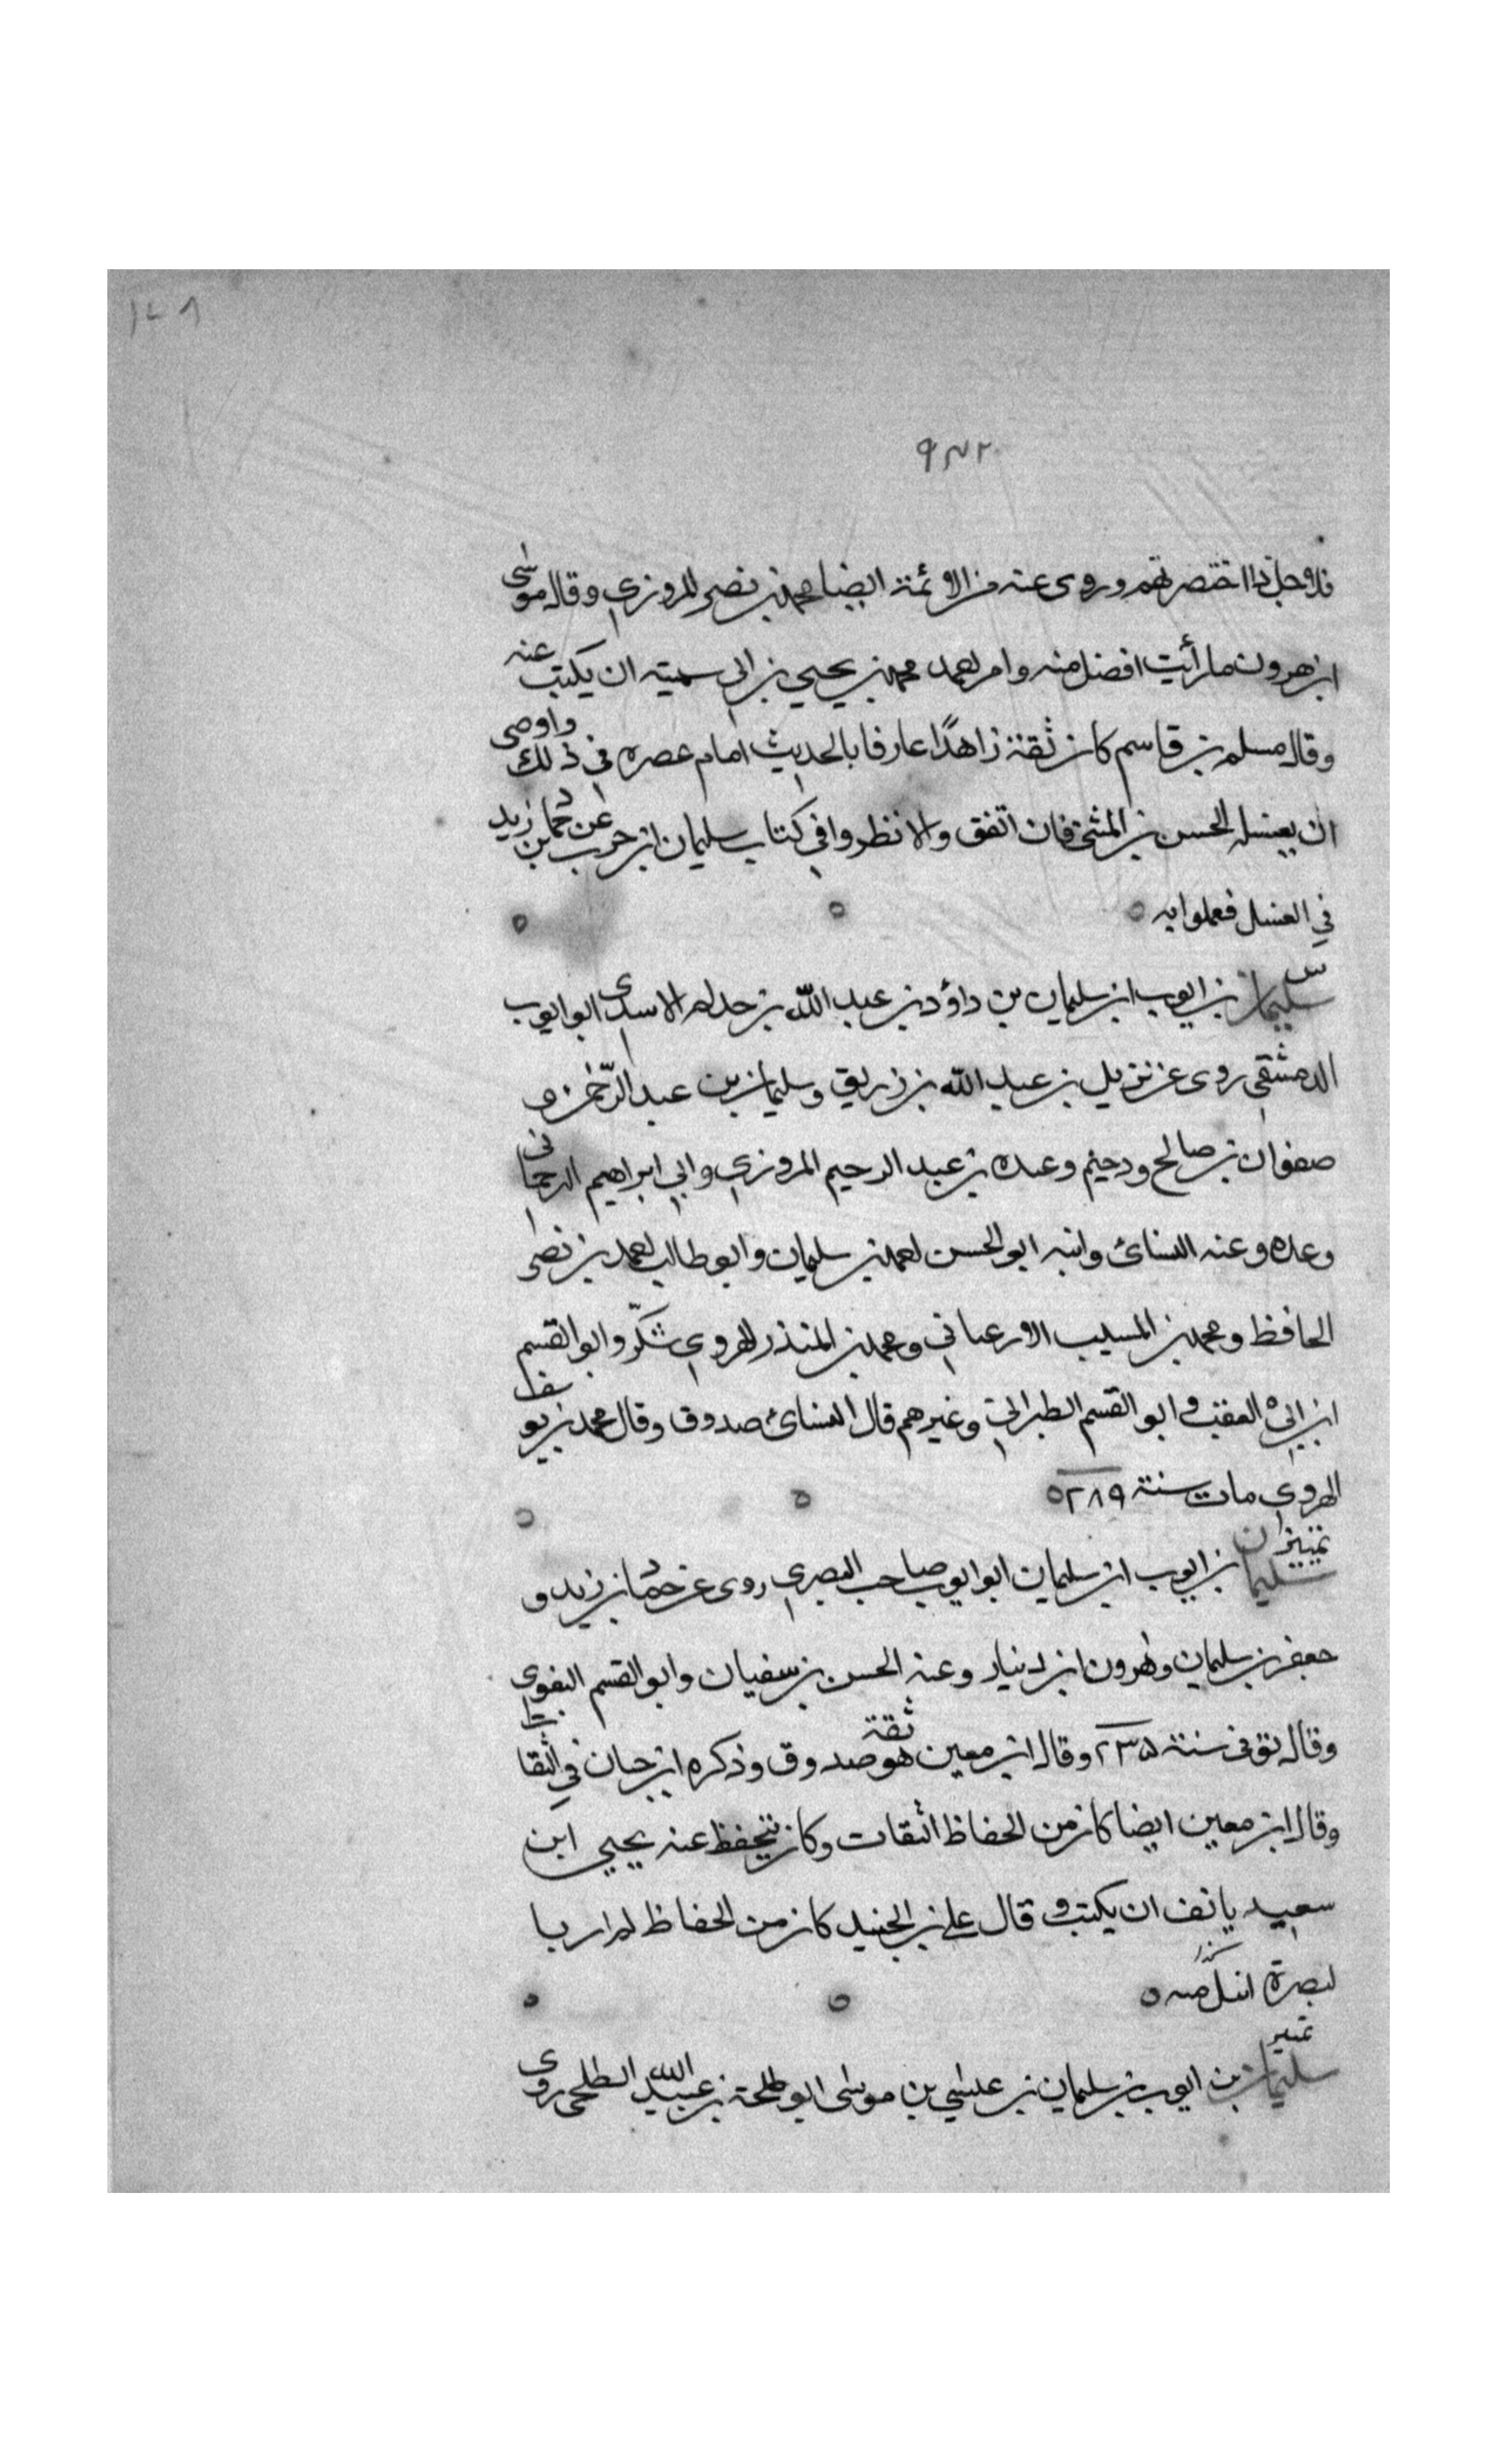 ١٢٨
٩٣٢
فلاوجل ذا اختصرتهم وروى عنه من الائمة ايضا محمد بن نصر المروزي وقال موسى
ابن هرون ما رأيت افضل منه وامر احمد محمد بن يحيى بن ابي سمينه ان يكتب عنه
وقال مسلمه بن قاسم كان ثقة زاهدًا عارفا بالحديث امام عصره في ذلك واوصى
ان يغسله الحسن بن المثنى فان اتفق والا نظروا في كتاب سليمان ابن حرب عن حماد بن زيد
في الغسل فعملوا به ٥ ٥ ٥
س
سليمان بن ايوب ابن سليمان بن داؤد بن عبد الله بن حذلم الاسدى ابو ايوب
الدمشقي روى عن يزيد بن عبد الله بن زريق وسليمان بن عبد الرّحمن و
صفوان بن صالح ودحيم وعبده بن عبد الرحيم المروزي وابي ابراهيم الترجمانى
وعده وعنه النسائ وابنه ابو الحسن احمد بن سليمان وابو طالب احمد بن نصر
الحافظ ومحمد بن المسيب الارغيانى ومحمد بن المنذر الهروي شكّر وابو القسم
ابن ابي العقب وابو القسم الطبرانى وغيرهم قال النسائ صدوق وقال محمد بن يوسف
الهروي مات سنة ٢٨٩ ٥ ٥ ٥
تمييز
سليمان بن ايوب ابن سليمان ابو ايوب صاحب البصري روى عن حماد بن زيد و
جعفر بن سليمان وهرون ابن دينار وعنه الحسن بن سفيان وابو القسم البغوي
وقال توفى سنة ٢٣٥ وقال ابن معين هو ثقة صدوق وذكره ابن حبان في الثقات
وقال ابن معين ايضا كان من الحفاظ الثقات وكان يتحفظ عنه يحيى ابن
سعيد يانف ان يكتب و قال علي بن الجنيد كان من الحفاظ لم ار با
لبصرة انبل منه ٥ ٥ ٥
تمييز
سليمان بن ايوب بن سليمان بن عيسى بن موسى ابو طلحة بن عبيد الله الطلحى روى